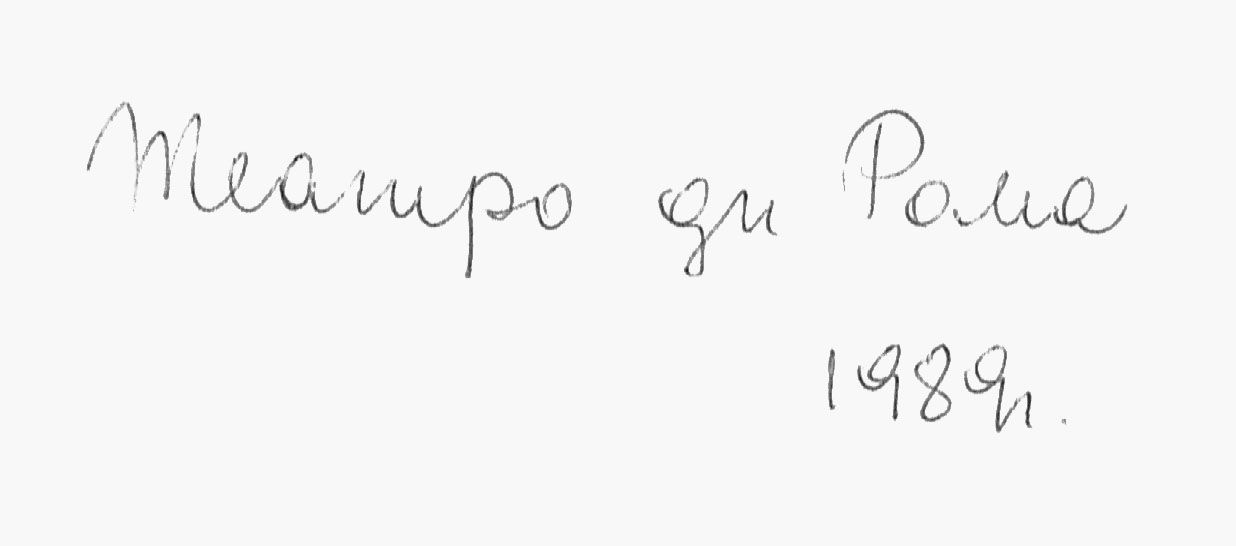 Театро ди Рома
1989г.